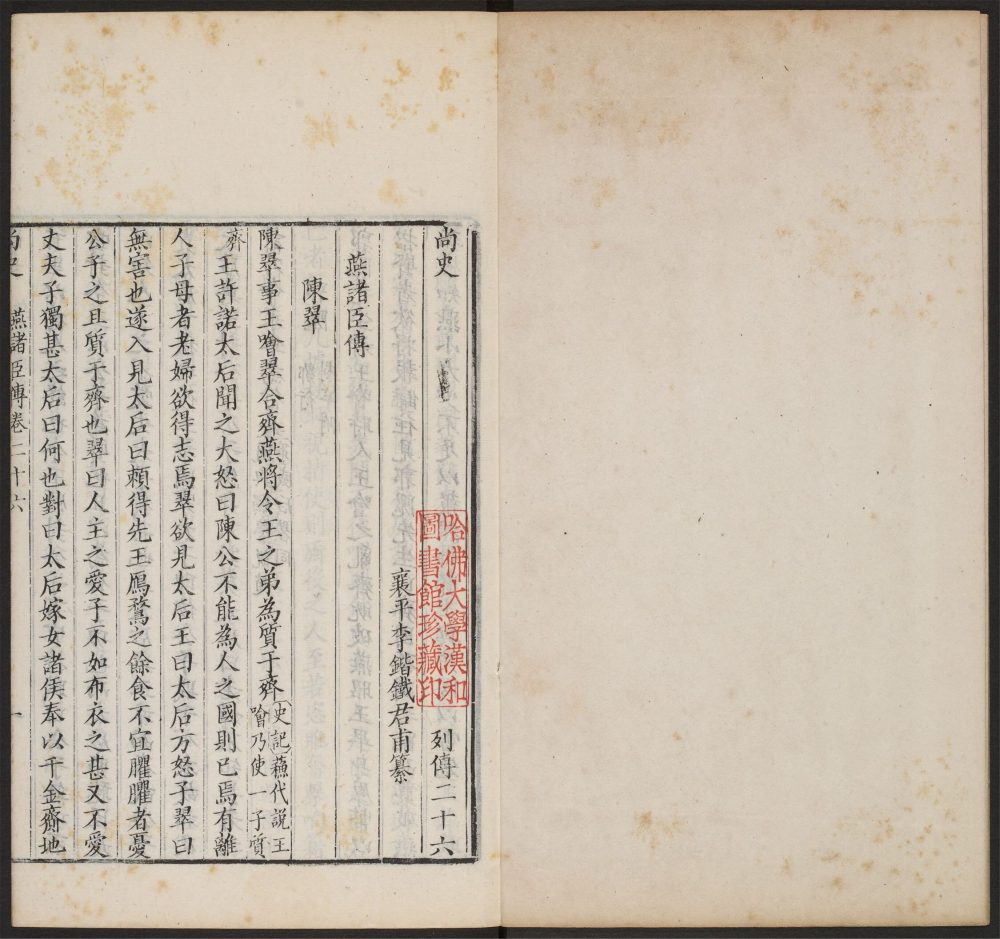 尚史
列傳二十六
襄平李鍇鐵君甫纂
哈佛大學漢和
圖書館珍藏印
燕諸臣傳
陳翠
陳翠事王噲翠合齊燕將令王之弟為質于齊史記蘓代說王
噲乃使一子質
齊王許諾太后聞之大怒曰陳公不能為人之國則已焉有離
人子母者老婦欲得志焉翠欲見太后王曰太后方怒子翠曰
無害也遂入見太后曰何臞也太后曰賴得先王鴈鶩之餘食不宜臞臞者憂
公子之且質于齊也翠曰人主之愛子不如布衣之甚又不愛
丈夫子獨甚太后曰何也對曰太后嫁女諸侯奉以千金齎地
尚史 燕諸臣傳卷二十六 一